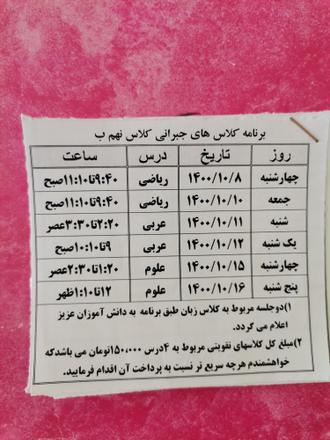 برنامه کلاس های جبرانی کلاس نهم ب
روز تاریخ درس ساعت
چهارشنبه ۱۴۰۰/۱۰/۸ ریاضی ۹:۴۰تا۱۱:۱۰صبح
جمعه ۱۴۰۰/۱۰/۱۰ ریاضی ۹:۴۰تا۱۱:۱۰صبح
شنبه ۱۴۰۰/۱۰/۱۱ عربی ۲:۲۰تا۳:۳۰عصر
یک شنبه ۱۴۰۰/۱۰/۱۲ عربی ۹تا۱۰:۱۰صبح
چهارشنبه ۱۴۰۰/۱۰/۱۵ علوم ۱:۲۰تا۲:۳۰عصر
پنج شنبه ۱۴۰۰/۱۰/۱۶ علوم ۱۲تا۱:۱۰ظهر
۱)دوجلسه مربوط به کلاس زبان طبق برنامه به دانش آموزان عزیز
اعلام می گردد.
۲)مبلغ کل کلاسهای تقویتی مربوط به ۴درس ۱۵۰،۰۰۰تومان می باشدکه
خواهشمندم هرچه سریع تر نسبت به پرداخت آن اقدام فرمایید.